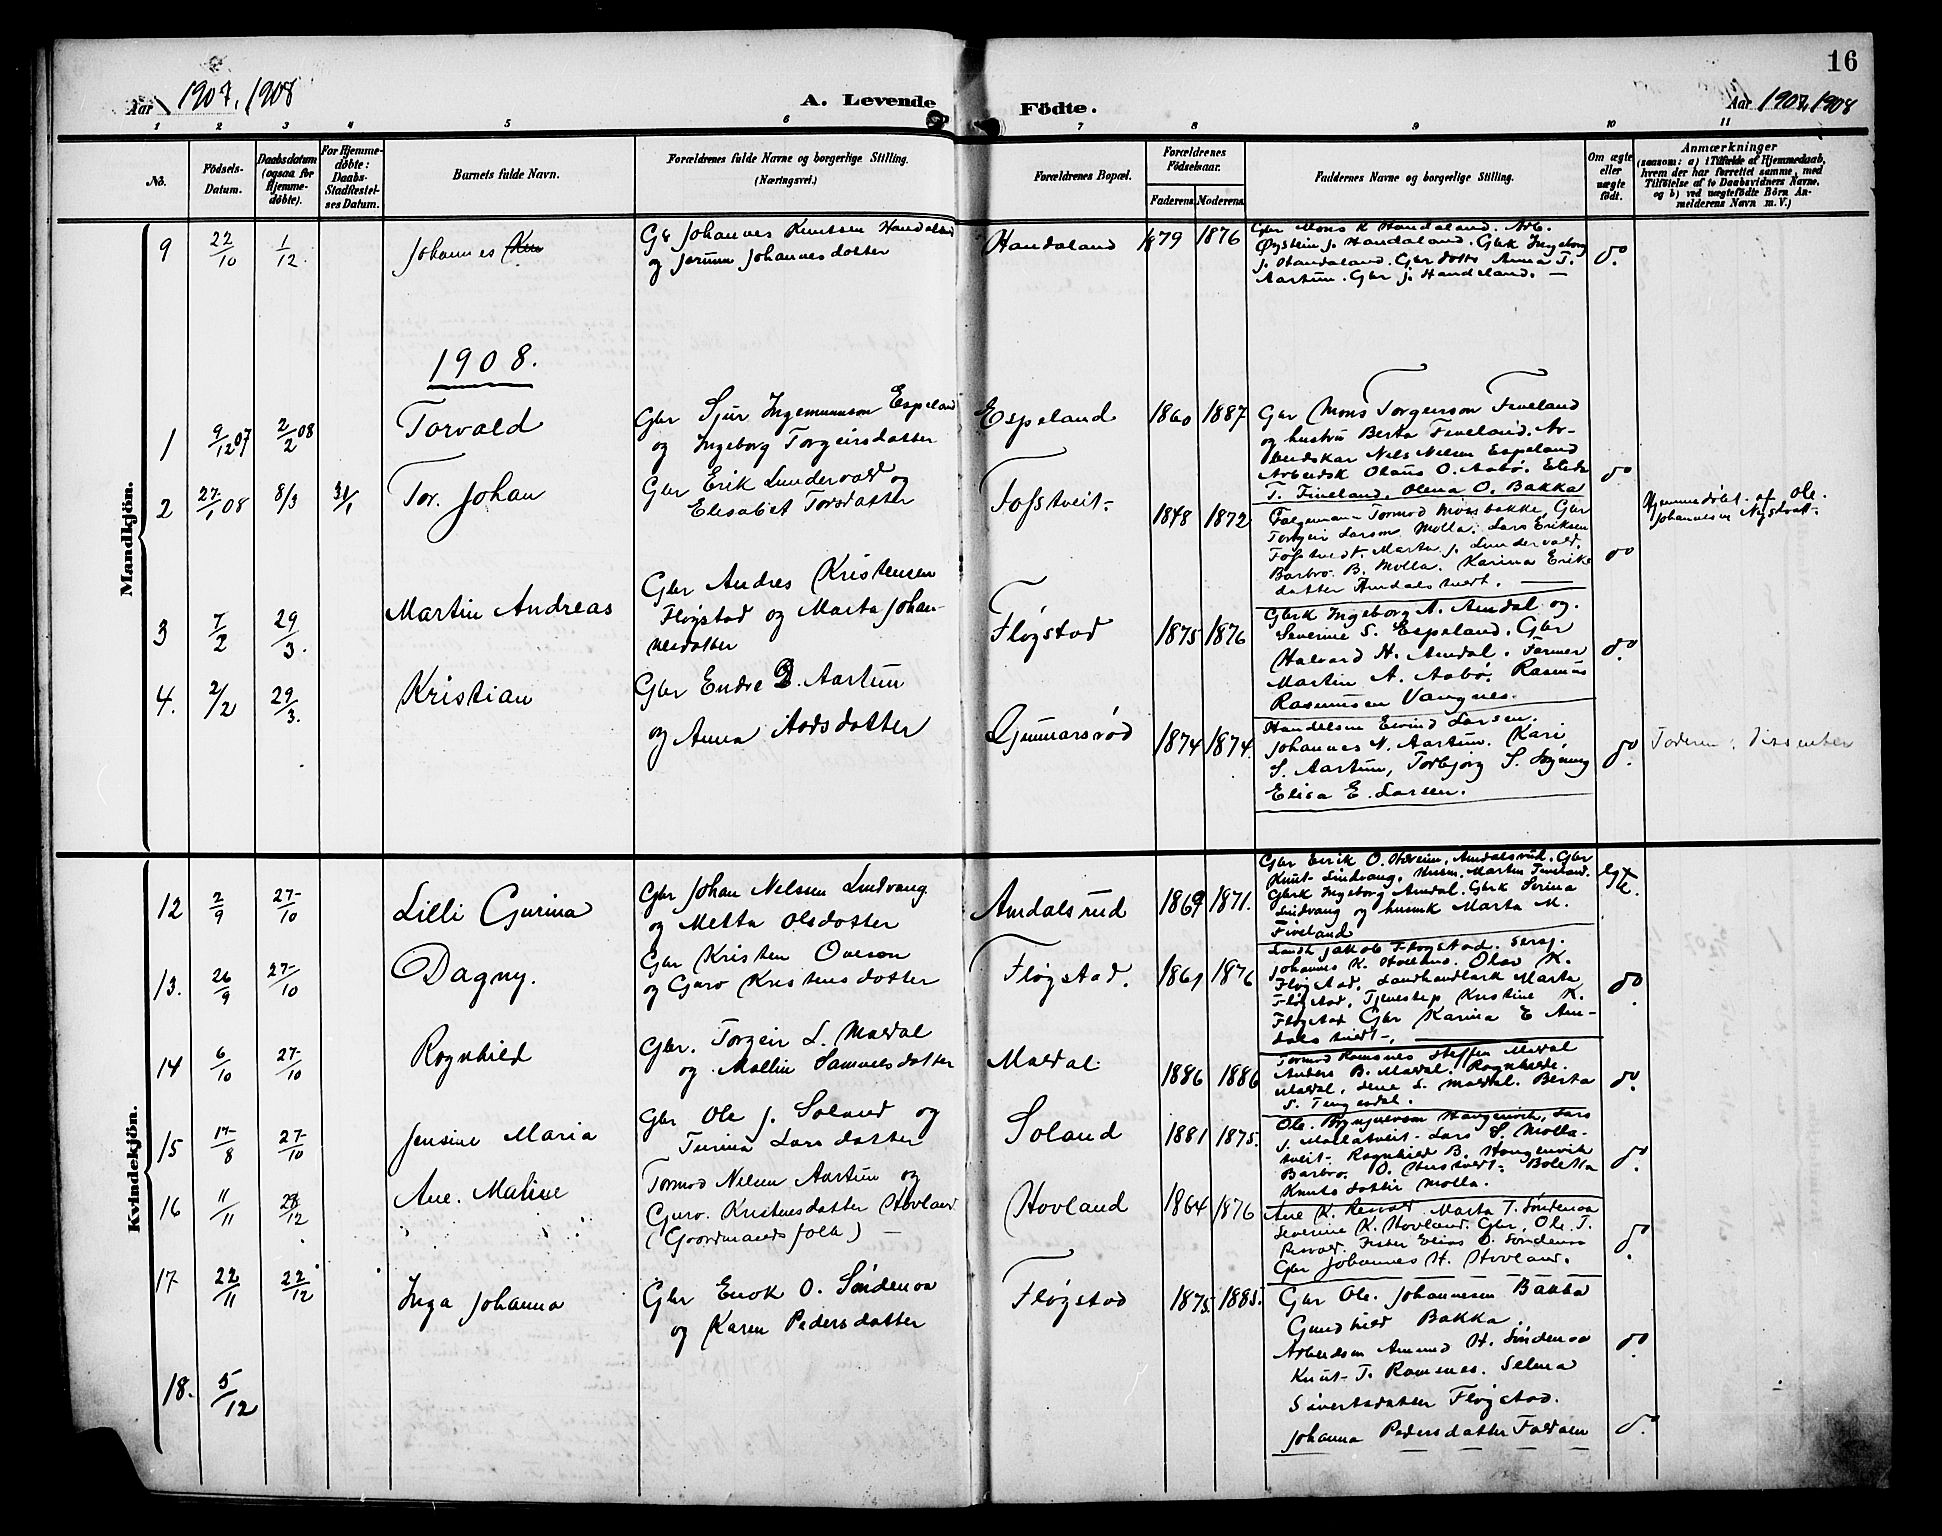 16
Aar 1907, 1908
A. Levende Födte.
Aar 1907, 1908
1 2 3 4 5 6 7 8 9 10 11
No.
Födsels-
Datum.
Daabsdatum
(ogsaa for
Hjemme-
döbte).
For Hjemme-
döbte:
Daabs-
Stadfæstel-
ses Datum.
Barnets fulde Navn.
Forældrenes fulde Navne og borgerlige Stilling.
(Næringsvei.)
Forældrenes Bopæl.
Forældrenes
Fødselsaar.
Faderens Moderens
Faddernes Navne og borgerlige Stilling.
Om ægte
eller
uægte
födt.
Anmærkninger
(saasom: a) i Tilfælde af Hjemmedaab,
hvem der har forrettet samme, med
Tilföielse af to Daabsvidners Navne,
og b) ved uægtefödte Börn An-
melderens Navn m. V.)
Mandkjön.
9 22/10 1/12. Johannes
Gbr Johannes Knutsen Handeland
og Jorunn Johannesdatter
Handaland 1879 1876
Gbr Mons K Handaland. Arb.
Øystein J. Handaland. Gbrk Ingeborg
J. Handaland. Gbr dotts Anna T.
Aartun. Gbr J. Handeland. —
do
1908.
1 9/12 07 2/2 08 Torvald
Gbr Sjur Ingemunnson Espeland
og Ingeborg Torgeirsdatter
Espeland 1860 1887
Gbr Mons Torgerson Fiveland
og hustru Berta Fiveland. Ar-
beidskar Nels Nelsen Espeland
Arbeidsk Olaus O. Aabø. Elida
T. Fiveland. Olena O. Bakka
do
2 27/1 08 8/3 31/1 Tor. Johan
Gbr Erik Lundervold og
Elisabet Torsdatter
Fosstveit. 1848 1872
Tormod Monsbakke, Gbr
Torgeir Larson Molla. Lars Eriksen
Fosstvedt. Marta J. Lundervold.
Barbro. B. Molla. Karina Eriks
datter Amdalstvedt. —
do
Hjemmedöbt af Ole.
Johannesen
3 7/2 29/3. Martin Andreas
Gbr Andres Kristensen
Fløgstad og Marta Johan-
nesdatter
Fløgstad 1875 1876
Gbrk Ingeborg A. Amdal og.
Severine S. Espeland. Gbr
Halvard H. Amdal. Farmer
Martin A. Aabø. Rasmus
Rasmusen Vangnes.
do
4. 2/2 29/3. Kristian
Gbr Endre Aartun
og Anna Aadsdatter
Gunnarsrød 1874 1874.
Handelsm Eivind Larsen.
Johannes N. Aartun. Kari
S. Aartun, Torbjorg S.
Elisa E. Larsen.
do
Faderen: Dissenter
Kvindekjön.
12 2/9 27/10 Lilli Gurina
Gbr Johan Nelsen Lindvang
og Metta Olsdotter
Amdalsrud 1869 1871.
Gbr Eirik O. Amdalsrud. Gbr
Knut Lindvang. Husm. Martin Fiveland.
Gbrk Ingeborg Amdal. Gbrk Serina
Lindvang og husmk Marta M.
Fiveland
Egte.
13. 26/9 27/10 Dagny.
Gbr Kristen Oveson
og Guro Kristensdotter
Fløgstad. 1861 1876
Landh Jakob Fløgstad. Sersj.
Johannes K. Hovland. Olav K.
Fløgstad, Landhandlark Marta
Fløgstad, Tjenestep. Kristine K.
Fløgstad Gbr Karina E Am-
dalstvedt. —
do
14 6/10 27/10 Rognhild
Gbr. Torgeir L. Maldal
og Mallin Samuelsdatter
Maldal 1886 1886
Tormod Ramsnes Steffen Maldal
Anders B. Maldal. Rognhilde.
Maldal, Lene L. Maldal. Berta
S. Tengesdal.
do.
15 17/8 27/10 Jensine Maria
Gbr Ole J. Soland og
Turina Larsdatter
Soland 1881 1875.
Ole. Brynjulvson Haugenvik, Lars
J. Mollatveit. Lars S. Molla-
tveit. Rognhild B. Haugenvik
Barbro. O. Boletta
Knutsdatter Molla.
do.
16 11/11 28/12 Ane. Maline
Tormod Nelsen Aartun og
Guro. Kristensdatter Hovland
(Goordmandsfolk) —
Hovland 1864 1876
Ane K. Marta T. Søndenaa
Severine K. Hovland. Gbr, Ole T.
Elias O. Søndenaa
Gbr Johannes H. Hovland.
do.
17 22/11 22/12 Inga Johanna
Gbr Enok O. Søndenaa
og Karen Pedersdatter
Fløgstad 1875 1885.
Gbr Ole. Johannesen Bakka
Gundhild Bakka
Arbeidsm Amund H. Søndenaa
Knut T. Ramsnes. Selma
Sivertsdatter Fløgstad.
Johanna Pedersdatter
do.
18. 5/12
do.